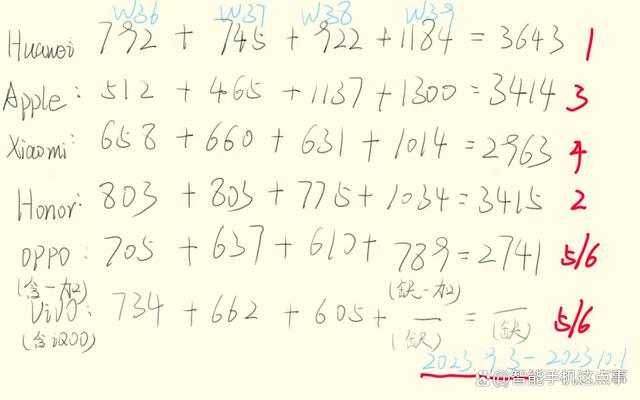 W36 W37 W38 W39
Huawei 792 + 745 + 922 + 1184 = 3643 1
Apple: 512 + 465 + 1137 + 1300 = 3414 3
Xiaomi: 658 + 660 + 631 + 1014 = 2963 4
Honor: 803 + 803 + 775 + 1034 = 3415 2
OPPO: 705 + 637 + 610 + 789 = 2741 5/6
(含一加) (缺一加)
ViVO: 734 + 662 + 605 + — = — 5/6
(含iQOO) (缺) (缺)
2023.9.3-2023.10.1
@智能手机这点事